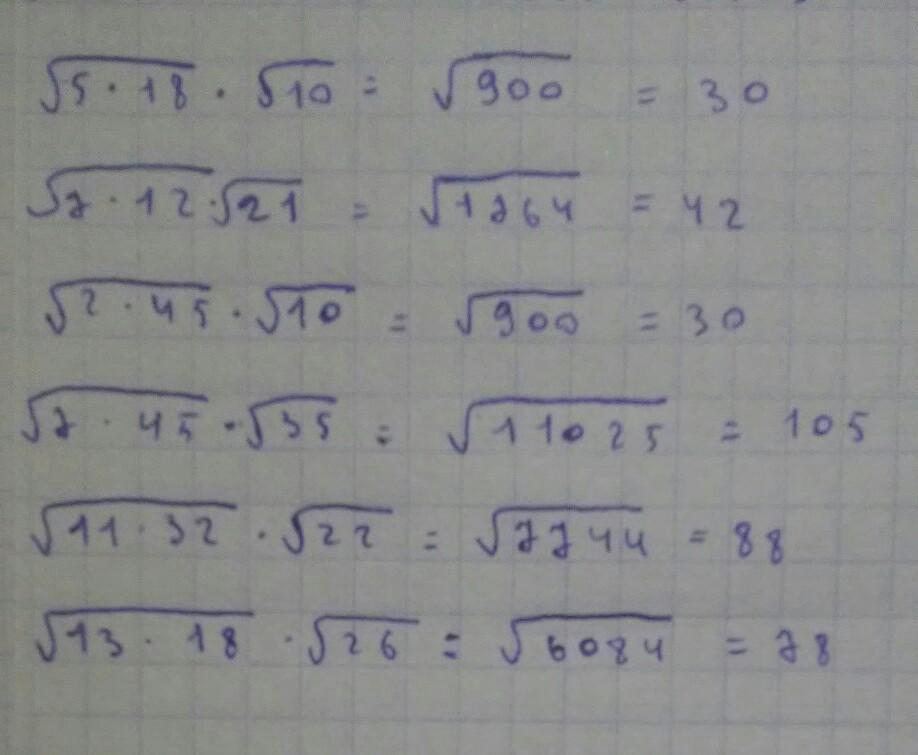 √5·18 · √10 = √900 = 30
√7·12 · √21 = √1764 = 42
√2·45 · √10 = √900 = 30
√7·45 · √35 = √11025 = 105
√11·32 · √22 = √7744 = 88
√13·18 · √26 = √6084 = 78